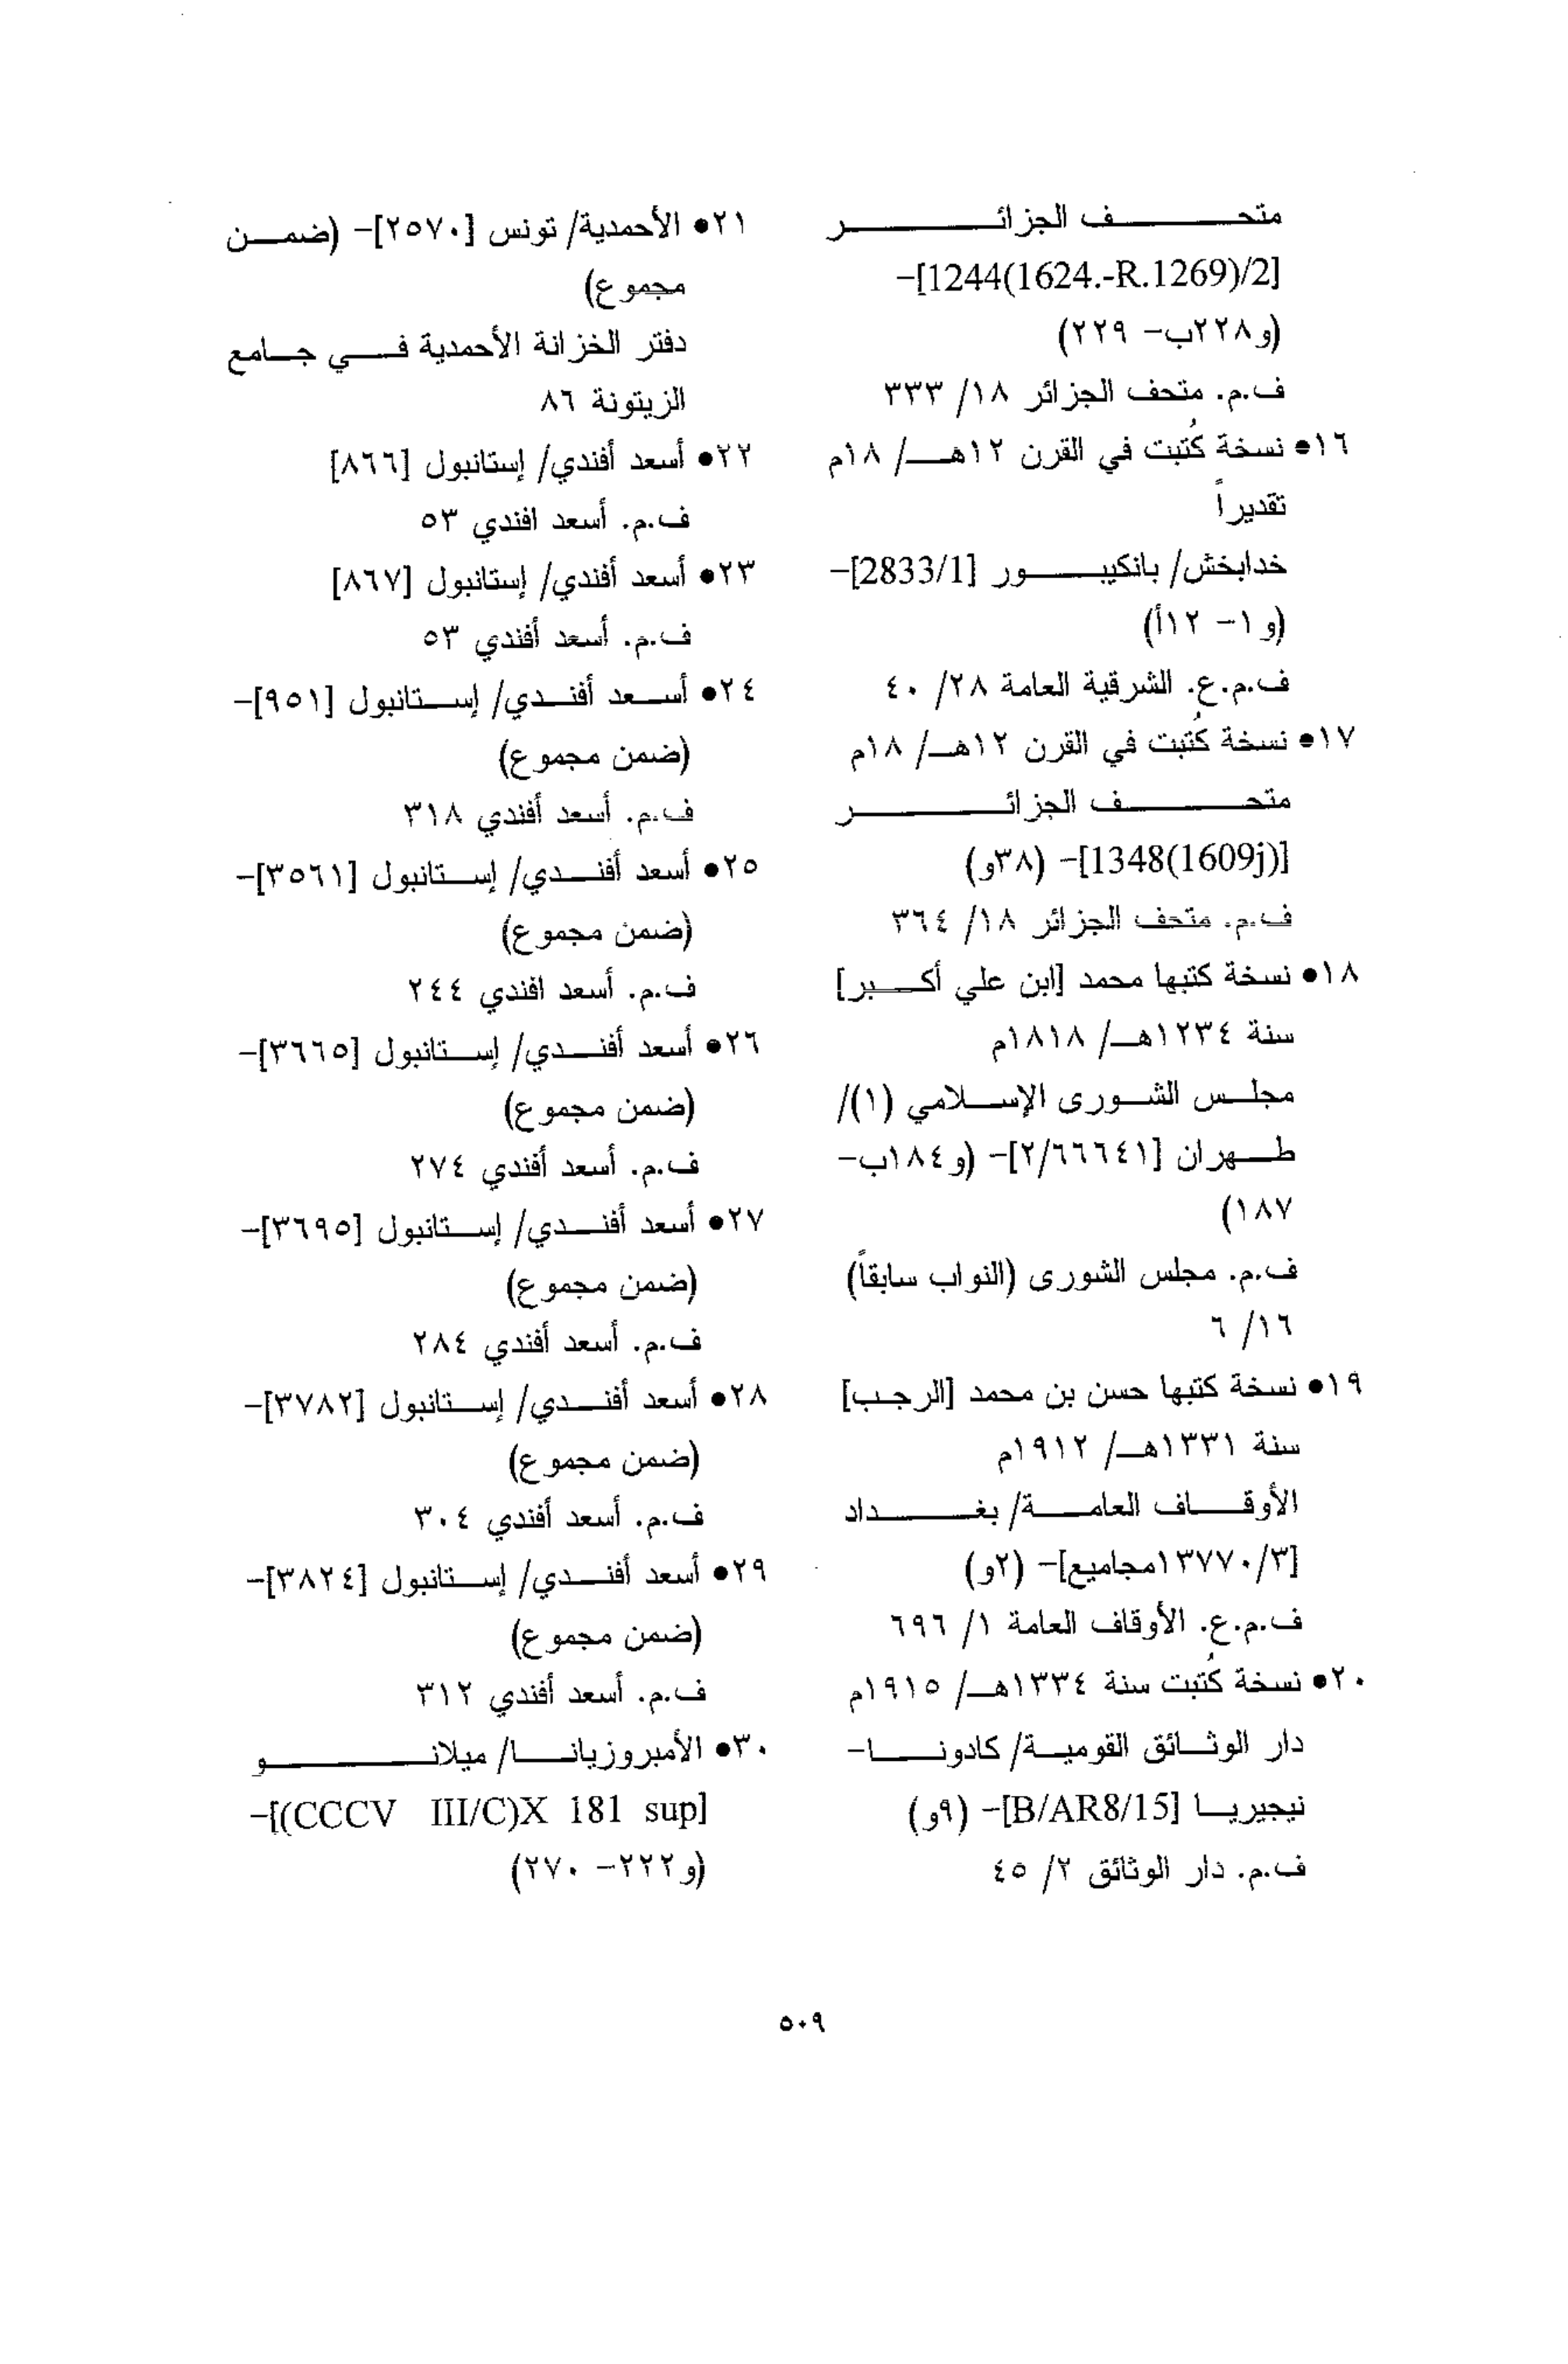 متحف الجزائر
[1244(1624.-R.1269)/2]-
(و٢٢٨ب- ٢٢٩)
ف.م. متحف الجزائر ١٨/ ٣٣٣
١٦• نسخة كُتبت في القرن ١٢هـ/ ١٨م
تقديراً
خدابخش/ بانكيبور [2833/1]-
(و١- ١٢أ)
ف.م.ع. الشرقية العامة ٢٨/ ٤٠
١٧• نسخة كُتبت في القرن ١٢هـ/ ١٨م
متحف الجزائر
[1348(1609j)]- (٣٨و)
ف.م. متحف الجزائر ١٨/ ٣٦٤
١٨• نسخة كتبها محمد [ابن علي أكبر]
سنة ١٢٣٤هـ/ ١٨١٨م
مجلس الشورى الإسلامي (١)/
طهران [٢/٦٦٦٤١]- (و١٨٤ب-
١٨٧)
ف.م. مجلس الشورى (النواب سابقاً)
١٦/ ٦
١٩• نسخة كتبها حسن بن محمد [الرجب]
سنة ١٣٣١هـ/ ١٩١٢م
الأوقاف العامة/ بغداد
[١٣٧٧٠/٣مجاميع]- (٢و)
ف.م.ع. الأوقاف العامة ١/ ٦٩٦
٢٠• نسخة كُتبت سنة ١٣٣٤هـ/ ١٩١٥م
دار الوثائق القومية/ كادونا-
نيجيريا [B/AR8/15]- (٩و)
ف.م. دار الوثائق ٢/ ٤٥
٢١• الأحمدية/ تونس [٢٥٧٠]- (ضمن
مجموع)
دفتر الخزانة الأحمدية في جامع
الزيتونة ٨٦
٢٢• أسعد أفندي/ إستانبول [٨٦٦]
ف.م. أسعد افندي ٥٣
٢٣• أسعد أفندي/ إستانبول [٨٦٧]
ف.م. أسعد أفندي ٥٣
٢٤• أسعد أفندي/ إستانبول [٩٥١]-
(ضمن مجموع)
ف.م. أسعد أفندي ٣١٨
٢٥• أسعد أفندي/ إستانبول [٣٥٦١]-
(ضمن مجموع)
ف.م. أسعد افندي ٢٤٤
٢٦• أسعد أفندي/ إستانبول [٣٦٦٥]-
(ضمن مجموع)
ف.م. أسعد أفندي ٢٧٤
٢٧• أسعد أفندي/ إستانبول [٣٦٩٥]-
(ضمن مجموع)
ف.م. أسعد أفندي ٢٨٤
٢٨• أسعد أفندي/ إستانبول [٣٧٨٢]-
(ضمن مجموع)
ف.م. أسعد أفندي ٣٠٤
٢٩• أسعد أفندي/ إستانبول [٣٨٢٤]-
(ضمن مجموع)
ف.م. أسعد أفندي ٣١٢
٣٠• الأمبروزيانا/ ميلانو
[(CCCV III/C)X 181 sup]-
(و٢٢٢- ٢٧٠)
٥٠٩